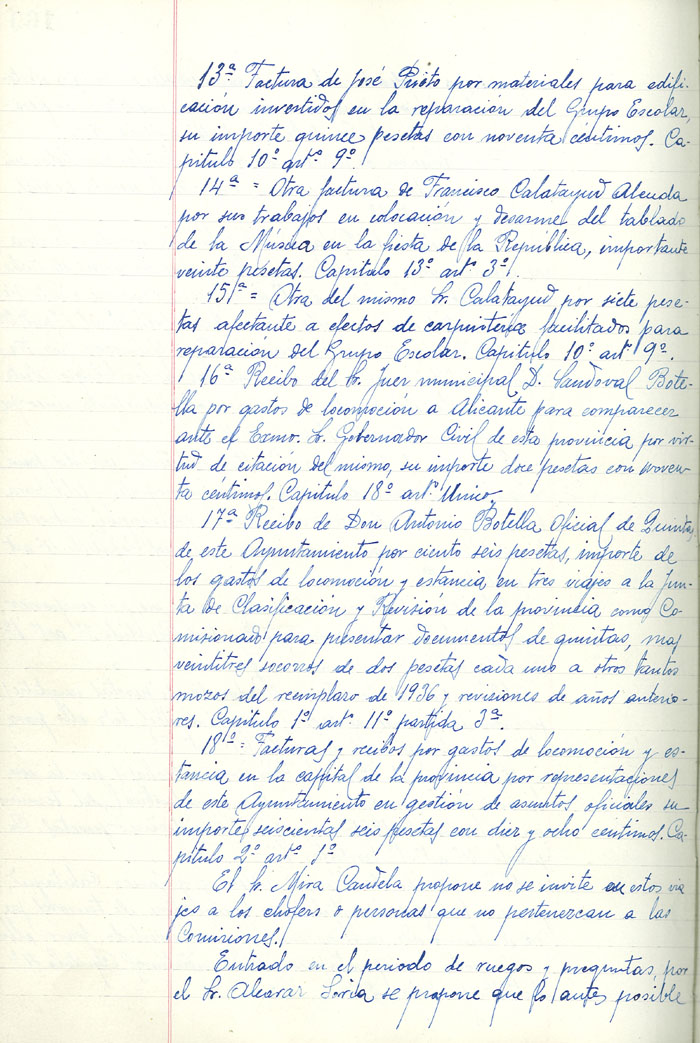 13ª Factura de José Prieto por materiales para edifi-
cación invertidos en la reparación del Grupo Escolar,
su importe quince pesetas con noventa céntimos. Ca-
pitulo 10º artº 9º.
14ª = Otra factura de Francisco Calatayud Alenda
por sus trabajos en colocación y desarme del tablado
de la Música en la fiesta de la República, importante
veinte pesetas. Capitulo 13º artº 3º.
15ª = Otra del mismo Sr. Calatayud por siete pese-
tas afectante a efectos de carpinteria facilitados para
reparación del Grupo Escolar. Capitulo 10º artº 9º.
16ª Recibo del Sr. Juez municipal D. Sandoval Bote-
lla por gastos de locomoción a Alicante para comparecer
ante el Exmo. Sr. Gobernador Civil de esta provincia por vir-
tud de citación del mismo, su importe doce pesetas con noven-
ta céntimos. Capitulo 18º artº Unico.
17ª Recibo de Don Antonio Botella Oficial de Quintas
de este Ayuntamiento por ciento seis pesetas, importe de
los gastos de locomoción y estancia en tres viajes a la Jun-
ta de Clasificación y Revisión de la provincia como Co-
misionado para presentar documentos de quintas, mas
veintitres socorros de dos pesetas cada uno a otros tantos
mozos del reemplazo de 1936 y revisiones de años anterio-
res. Capitulo 1º artº 11º partida 3ª.
18ª = Facturas y recibos por gastos de locomoción y es-
tancia en la capital de la provincia por representaciones
de este Ayuntamiento en gestión de asuntos oficiales su
importe seiscientas seis pesetas con diez y ocho centimos. Ca-
pitulo 2º artº 1º
El Sr. Mira Candela propone no se invite en estos via
jes a los chofers o personas que no pertenezcan a las
Comisiones.
Entrado en el periodo de ruegos y preguntas, por
el Sr. Alcaraz Soria se propone que lo antes posible